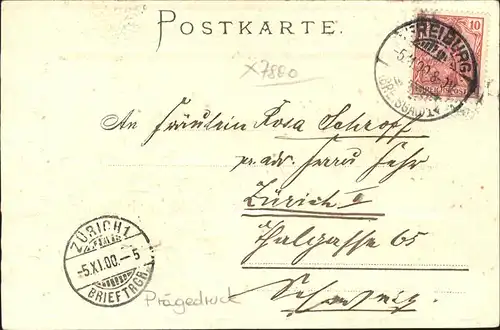 POSTKARTE.
10
FREIBURG
5.11.00.
(BREISGAU)
X7880
An Fräulein Rosa Schroff
pr. adr. Herrn Fehr
Zürich I
Thalgasse 65
Schweiz.
ZÜRICH 1
-5.XI.00.-5
BRIEFTRGR.
Prägedruck